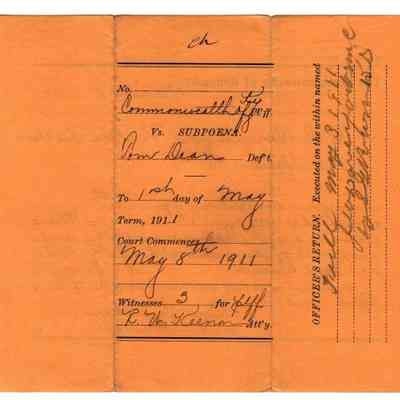 ch
No.
Commonwealth of Ky Pl'ff
Vs. SUBPOENA.
Tom Dean Def't.
To 1st day of May
Term, 1911
Court Commences 8th
May 8 1911
Witnesses 3 for Plff
R. W. Keenon Att'y.
OFFICER'S RETURN. Executed on the within named
May 3 1911